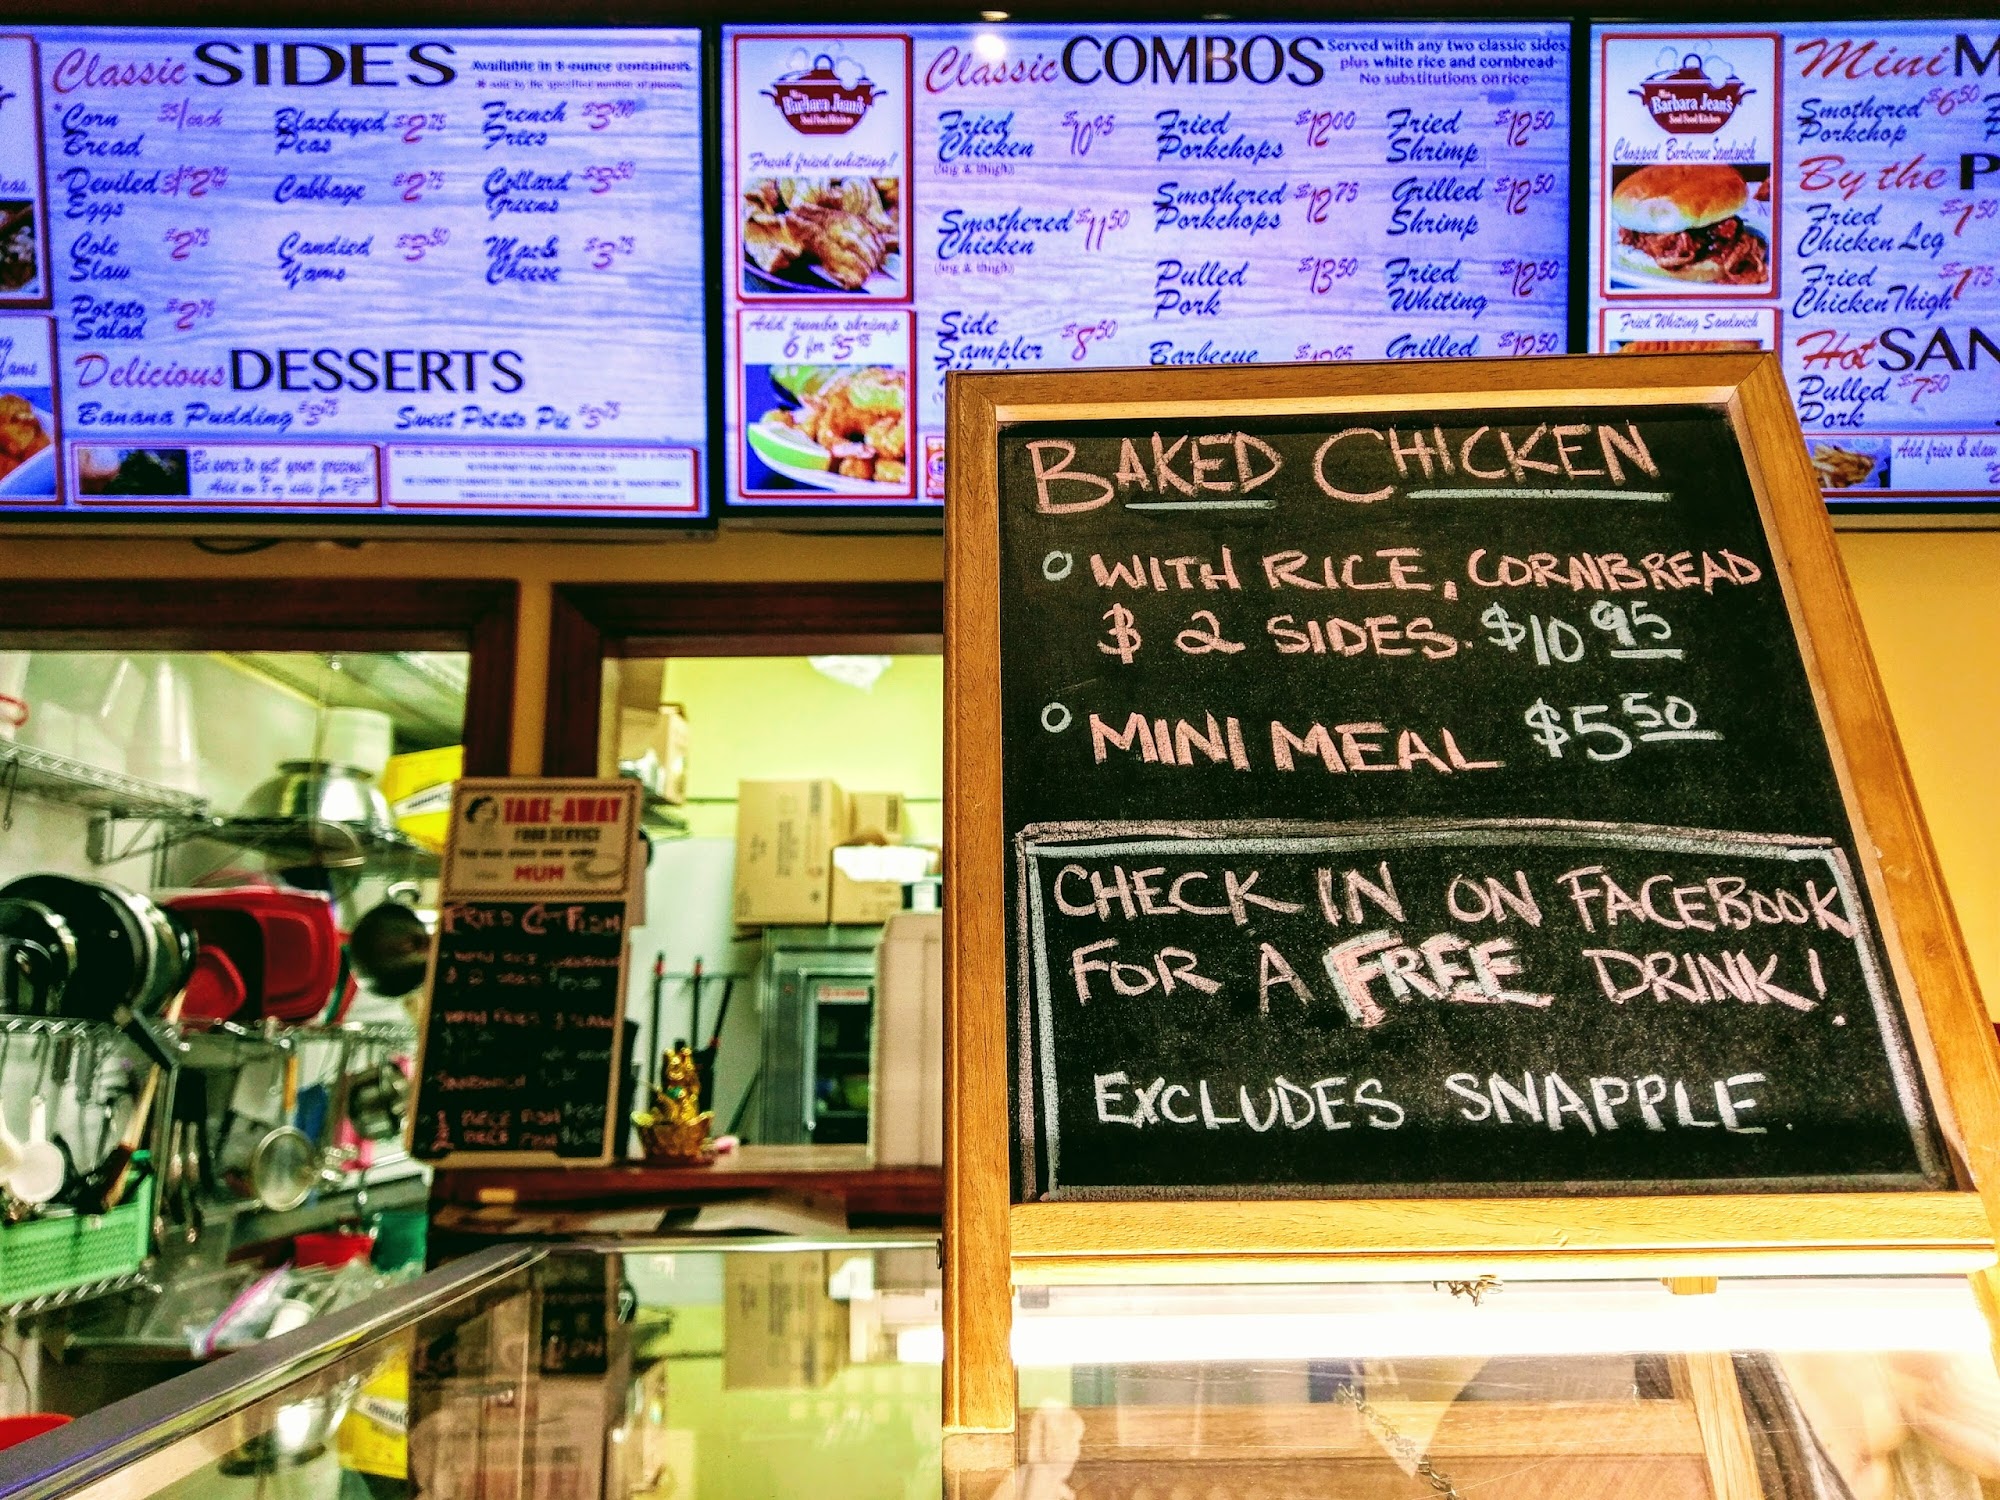 Classic SIDES
Available in 8 ounce containers.
*Corn Bread 35/each
*Deviled Eggs
Cole Slaw $2.75
Potato Salad $2.75
Blackeyed Peas $2.75
Cabbage $2.75
Candied Yams $3.50
French Fries $3.50
Collard Greens $3.50
Mac& Cheese $3.75
Delicious DESSERTS
Banana Pudding $3.75
Sweet Potato Pie $3.75
Be sure to get your greens!
Barbara Jean's
Soul Food Kitchen
Fresh fried whiting!
Add jumbo shrimp
6 for $5.95
Classic COMBOS
Served with any two classic sides,
plus white rice and cornbread
No substitutions on rice
Fried Chicken $10.95
(leg & thigh)
Smothered Chicken $11.50
(leg & thigh)
Side Sampler $8.50
Fried Porkchops $12.00
Smothered Porkchops $12.75
Pulled Pork $13.50
Barbecue
Fried Shrimp $12.50
Grilled Shrimp $12.50
Fried Whiting $12.50
Grilled $12.50
Barbara Jean's
Soul Food Kitchen
Chopped Barbecue Sandwich
Fried Whiting Sandwich
Mini M
Smothered Porkchop $6.50
By the P
Fried Chicken Leg $1.50
Fried Chicken Thigh $1.75
Hot SAN
Pulled Pork $7.50
Add fries & slaw
BAKED CHICKEN
WITH RICE, CORNBREAD
& 2 SIDES. $10.95
MINI MEAL $5.50
CHECK IN ON FACEBOOK
FOR A FREE DRINK!
EXCLUDES SNAPPLE.
TAKE-AWAY
FOOD SERVICE
MUM
FRIED CATFISH